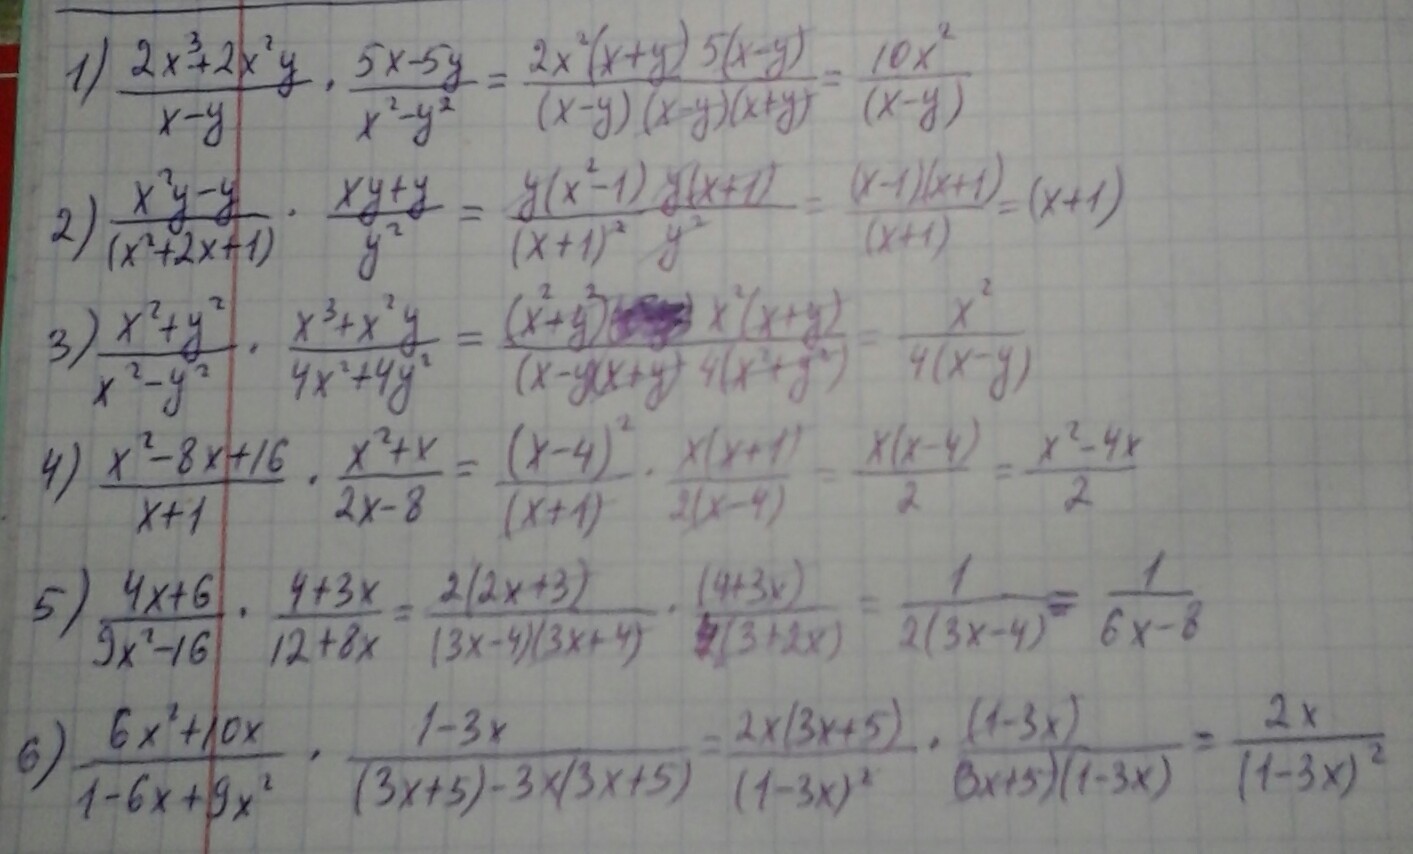 1) (2x³+2x²y)/(x-y) · (5x-5y)/(x²-y²) = (2x²(x+y) 5(x-y))/((x-y)(x-y)(x+y)) = 10x²/(x-y)
2) (x²y-y)/(x²+2x+1) · (xy+y)/y² = (y(x²-1) y(x+1))/((x+1)² y²) = ((x-1)(x+1))/(x+1) = (x+1)
3) (x²+y²)/(x²-y²) · (x³+x²y)/(4x²+4y²) = ((x²+y²) x²(x+y))/((x-y)(x+y) 4(x²+y²)) = x²/(4(x-y))
4) (x²-8x+16)/(x+1) · (x²+x)/(2x-8) = (x-4)²/(x+1) · x(x+1)/(2(x-4)) = x(x-4)/2 = (x²-4x)/2
5) (4x+6)/(9x²-16) · (4+3x)/(12+8x) = 2(2x+3)/((3x-4)(3x+4)) · (4+3x)/(4(3+2x)) = 1/(2(3x-4)) = 1/(6x-8)
6) (6x²+10x)/(1-6x+9x²) · (1-3x)/((3x+5)-3x(3x+5)) = 2x(3x+5)/(1-3x)² · (1-3x)/((3x+5)(1-3x)) = 2x/(1-3x)²